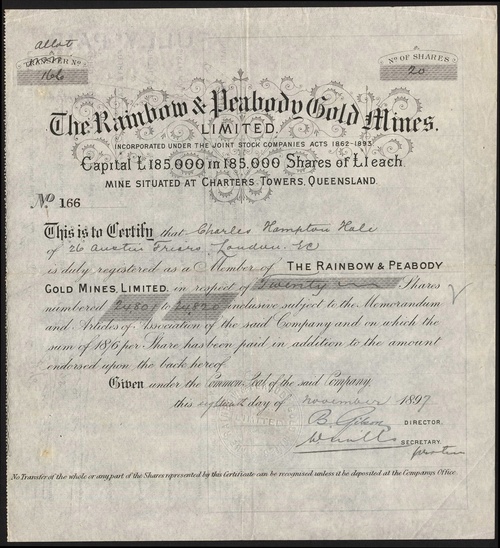 Allot
TRANSFER No
166
No OF SHARES
20
The Rainbow & Peabody Gold Mines.
LIMITED.
INCORPORATED UNDER THE JOINT STOCK COMPANIES ACTS 1862-1893.
Capital £185,000 in 185,000 Shares of £1 each.
MINE SITUATED AT CHARTERS TOWERS, QUEENSLAND.
No 166
This is to Certify that Charles Hampton Hale
of 26 Austin Friars. London. EC
is duly registered as a Member of THE RAINBOW & PEABODY
GOLD MINES, LIMITED. in respect of Twenty Shares
numbered 24801 to 24820 inclusive subject to the Memorandum
and Articles of Association of the said Company and on which the
sum of 18/6 per Share has been paid in addition to the amount
endorsed upon the back hereof.
Given under the Common Seal of the said Company.
this eighteenth day of November 1897
B. Gibson DIRECTOR.
SECRETARY.
No Transfer of the whole or any part of the Shares represented by this Certificate can be recognised unless it be deposited at the Companys Office.